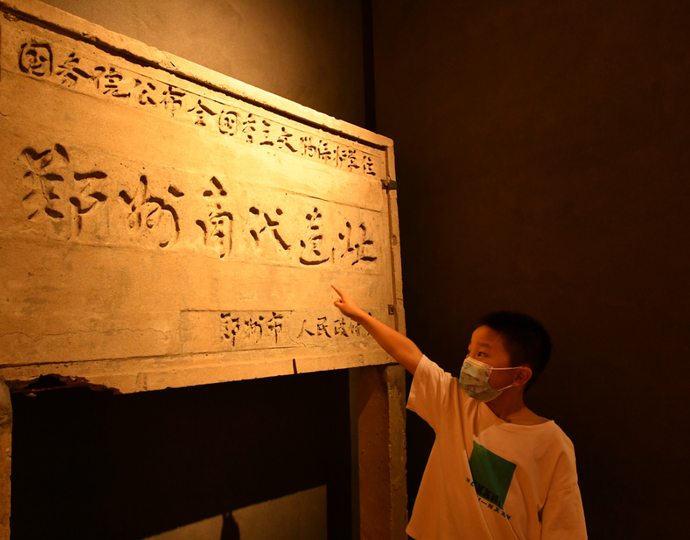 国务院公布全国重点文物保护单位
郑州商代遗址
郑州市人民政府